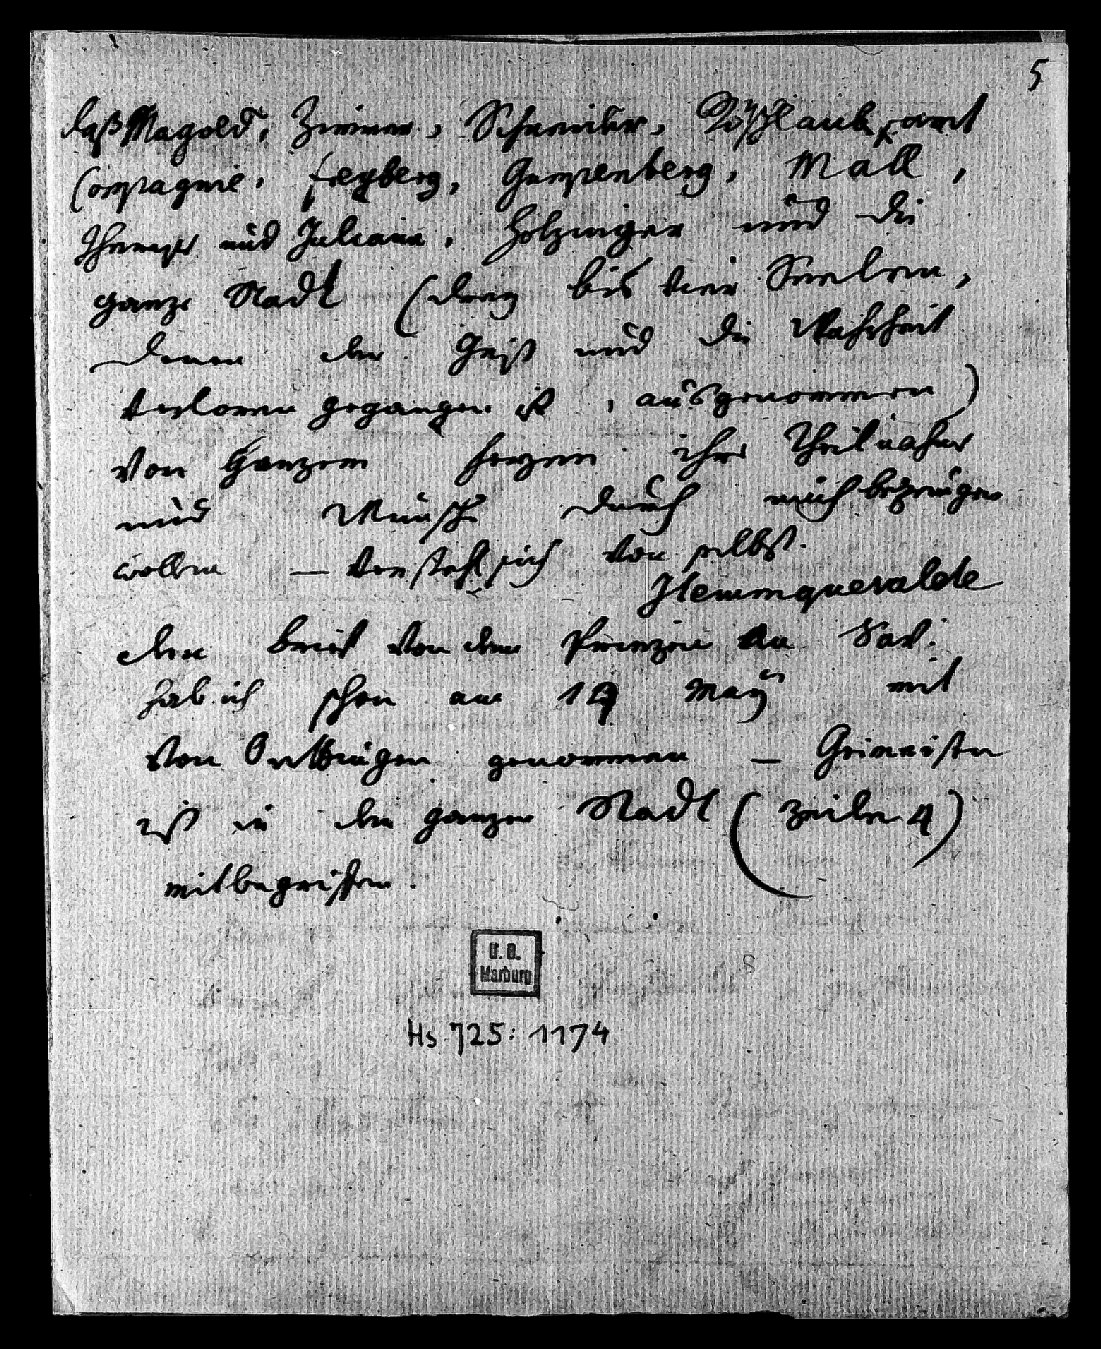 5
daß Magold, Zimmer, Schneider, Röschlaub samt
Compagnie, Freyberg, Gumpenberg, Mall,
und Juliana, Holzinger und die
ganze Stadt (drey bis vier Seelen,
denen der Geist und die Wahrheit
verloren gegangen ist, ausgenommen)
von Ganzem Herzen ihre Theilnahme
und Wunsch durch mich bezeugen
wollen — versteht sich von selbst.
Itemmque valete
den brief von dem Prinzen an Sav:
hab ich schon am 19 May mit
von genommen —
ist in der ganzen Stadt (Zeile 4)
mitbegriffen.
U. B.
Marburg
Hs 725: 1174
8